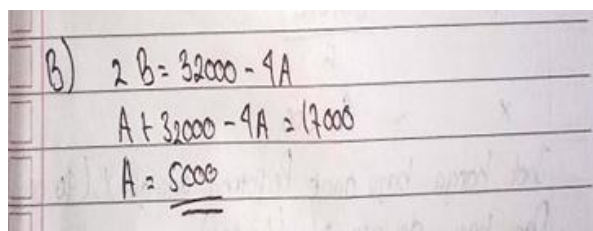 B) 2 B = 32000 - 4A
A + 32000 - 4A = 17000
A = 5000